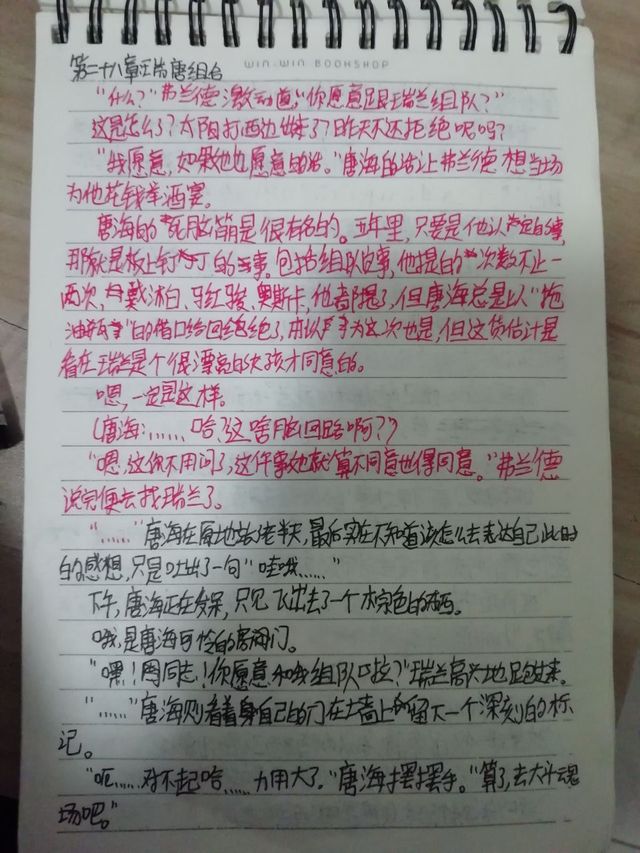 WIN.WIN BOOKSHOP
第二十八章 瑞唐组合
"什么?"弗兰德激动道,"你愿意跟瑞兰组队?"
这是怎么了?太阳打西边出来了?昨天不还拒绝呢吗?
"我愿意,如果她也愿意的话。"唐海的话让弗兰德想当场
为他花钱举酒宴。
唐海的死脑筋是很有名的。五年里,只要是他认定的事,
那就是板上钉钉的事。包括组队这事,他提的次数不止一
两次,戴沐白、马红骏、奥斯卡,他都提了,但唐海总是以"拖
油瓶"的借口给回绝绝了,本以为这次也是,但这货估计是
看在瑞兰是个很漂亮的女孩才同意的。
嗯,一定是这样。
(唐海:……哈?这啥脑回路啊?)
"嗯,这你不用问了,这件事她就算不同意也得同意。"弗兰德
说完便去找瑞兰了。
"……"唐海在原地站老半天,最后实在不知道该怎么去表达自己此时
的感想,只是吐出了一句"哇哦……"
下午,唐海正在发呆,只见飞出去了一个棕色的东西。
哦,是唐海可怜的房门。
"嘿!周同志!你愿意和我组队啦?"瑞兰高兴地跑过来。
"……"唐海则看着身自己的门在土墙上留下一个深刻的标
记。
"呃……对不起哈……力用大了。"唐海摆摆手。"算了,去大斗魂
场吧。"